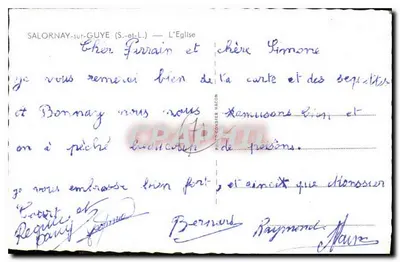 SALORNAY-sur-GUYE (S.-et-L.) — L'Eglise
Cher Pirrain et chère Simone
je vous remerci bien de la carte et des
A Bonnay nous nous hamusons bien et
on à pêché beaucoup de poisons.
je vous embrasse bien fort, et ainsit que Monsieur
et
Bernard Raymonde